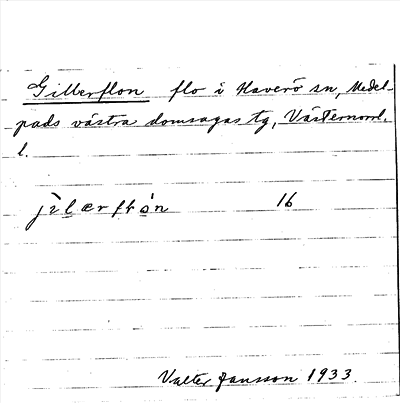 Gillerflon flo i Haverö sn, Medel-
pads västra domsagas tg, Västernorrl.
l.
jìlærflón 16
Valter Jansson 1933.